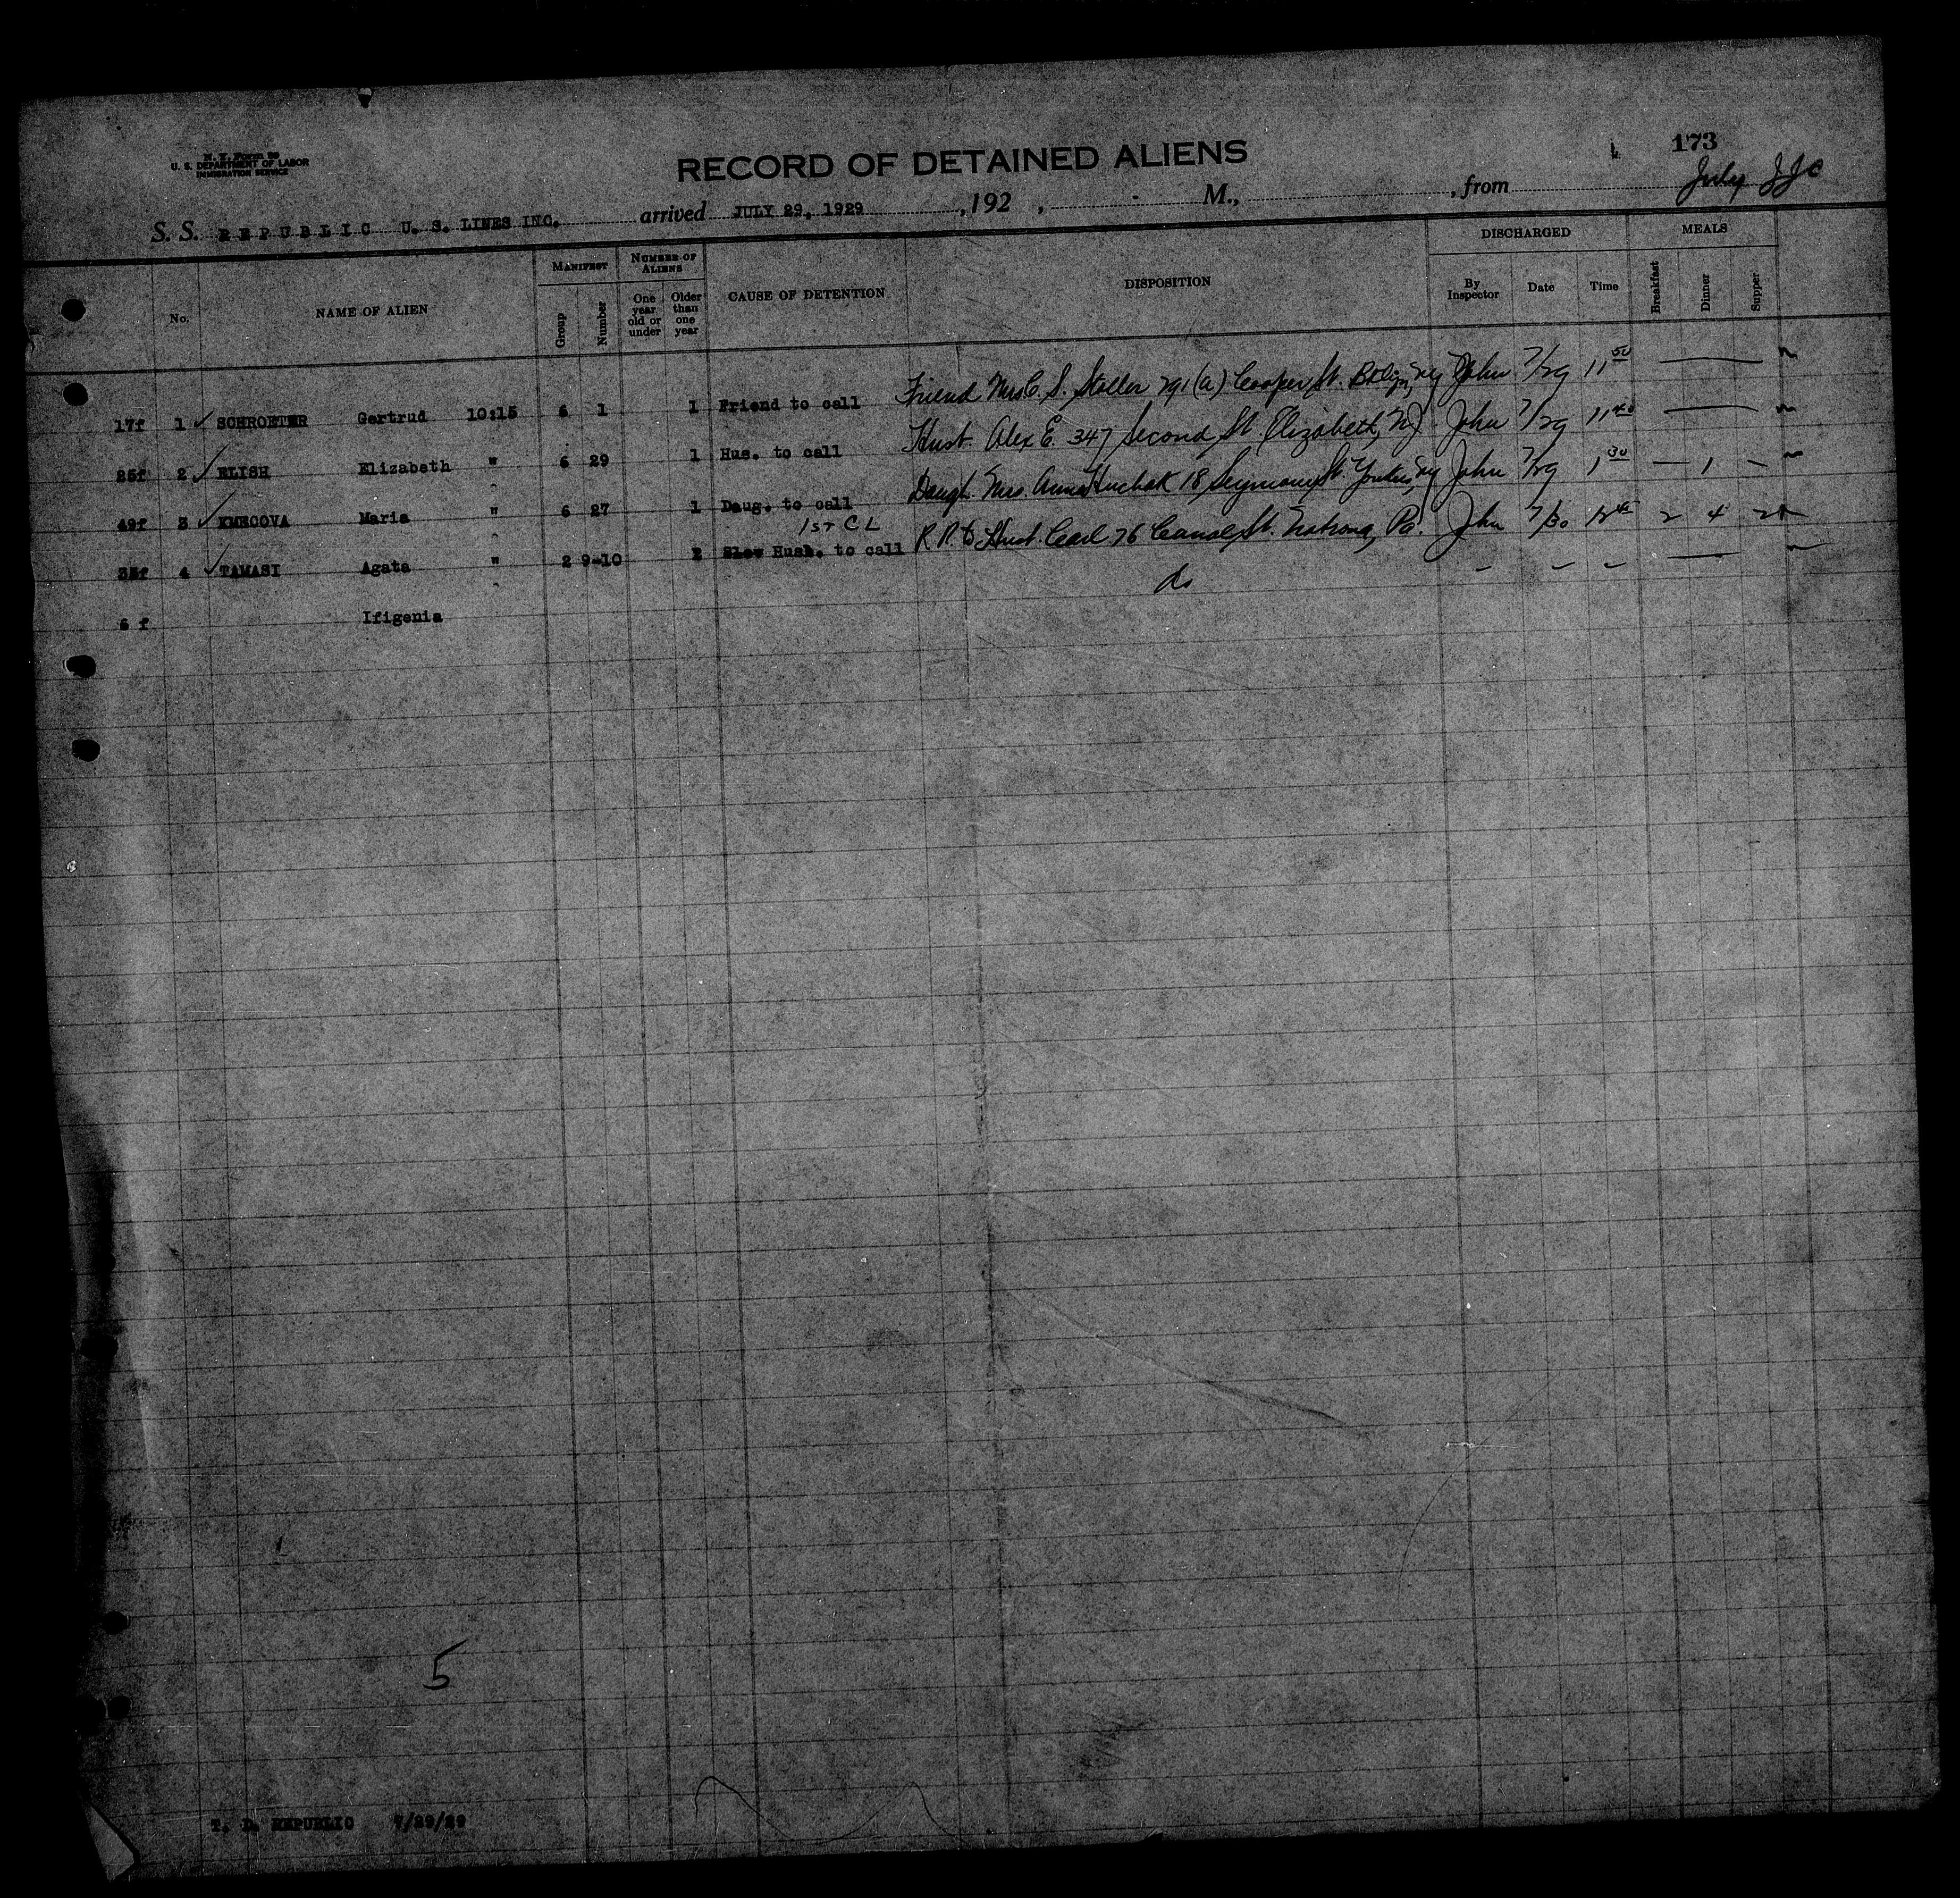 173
N. Y. Form 99
U. S. DEPARTMENT OF LABOR
IMMIGRATION SERVICE
RECORD OF DETAINED ALIENS
S. S. REPUBLIC U. S. LINES INC. arrived JULY 29, 1929 , 192 , M., , from
No. NAME OF ALIEN MANIFEST NUMBER OF ALIENS CAUSE OF DETENTION DISPOSITION DISCHARGED MEALS
Group Number One year old or under Older than one year By Inspector Date Time Breakfast Dinner Supper
17f 1 ✓ SCHROETER Gertrud 10:15 6 1 1 Friend to call Friend Mrs C. S. Staller 291(a) Cooper St. Bklyn, NY John 7/29 11 50 —
25f 2 ✓ ELISH Elizabeth " 6 29 1 Hus. to call Husb. Alex E. 347 Second St. Elizabeth, NJ John 7/29 11 40 —
49f 3 ✓ KMECOVA Maria " 6 27 1 Daug. to call Daugh. Mrs. Anna Huchak 18 Seymour St. Yonkers, NY John 7/29 1 30 — 1 —
1ST CL
4 ✓ TAMASI Agata " 2 9-10 2 Husb. to call R.R. to Husb. Carl 76 Canal St. Natrona, Pa. John 7/30 2 4 2
6 f Ifigenia do - - - —
5
T. D. REPUBLIC 7/29/29